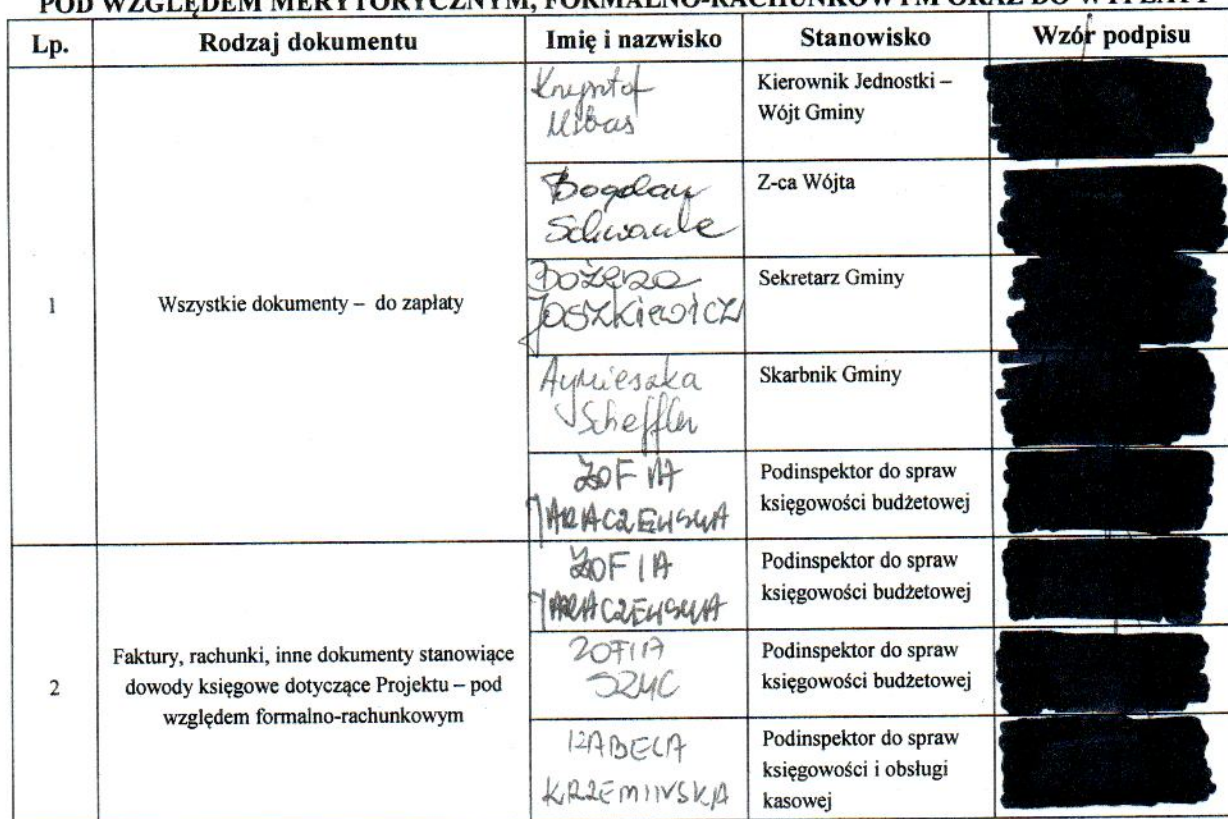 POD WZGLĘDEM MERYTORYCZNYM, FORMALNO-RACHUNKOWYM ORAZ DO WYPŁATY
Lp. Rodzaj dokumentu Imię i nazwisko Stanowisko Wzór podpisu
1
Wszystkie dokumenty – do zapłaty
Krzysztof
Mibas
Kierownik Jednostki –
Wójt Gminy
Bogdan
Schwanke
Z-ca Wójta
Bożena
Joszkiewicz
Sekretarz Gminy
Agnieszka
Scheffler
Skarbnik Gminy
ZOFIA
JARACZEWSKA
Podinspektor do spraw
księgowości budżetowej
2
Faktury, rachunki, inne dokumenty stanowiące
dowody księgowe dotyczące Projektu – pod
względem formalno-rachunkowym
ZOFIA
JARACZEWSKA
Podinspektor do spraw
księgowości budżetowej
ZOFIA
SZYC
Podinspektor do spraw
księgowości budżetowej
IZABELA
KRZEMIŃSKA
Podinspektor do spraw
księgowości i obsługi
kasowej